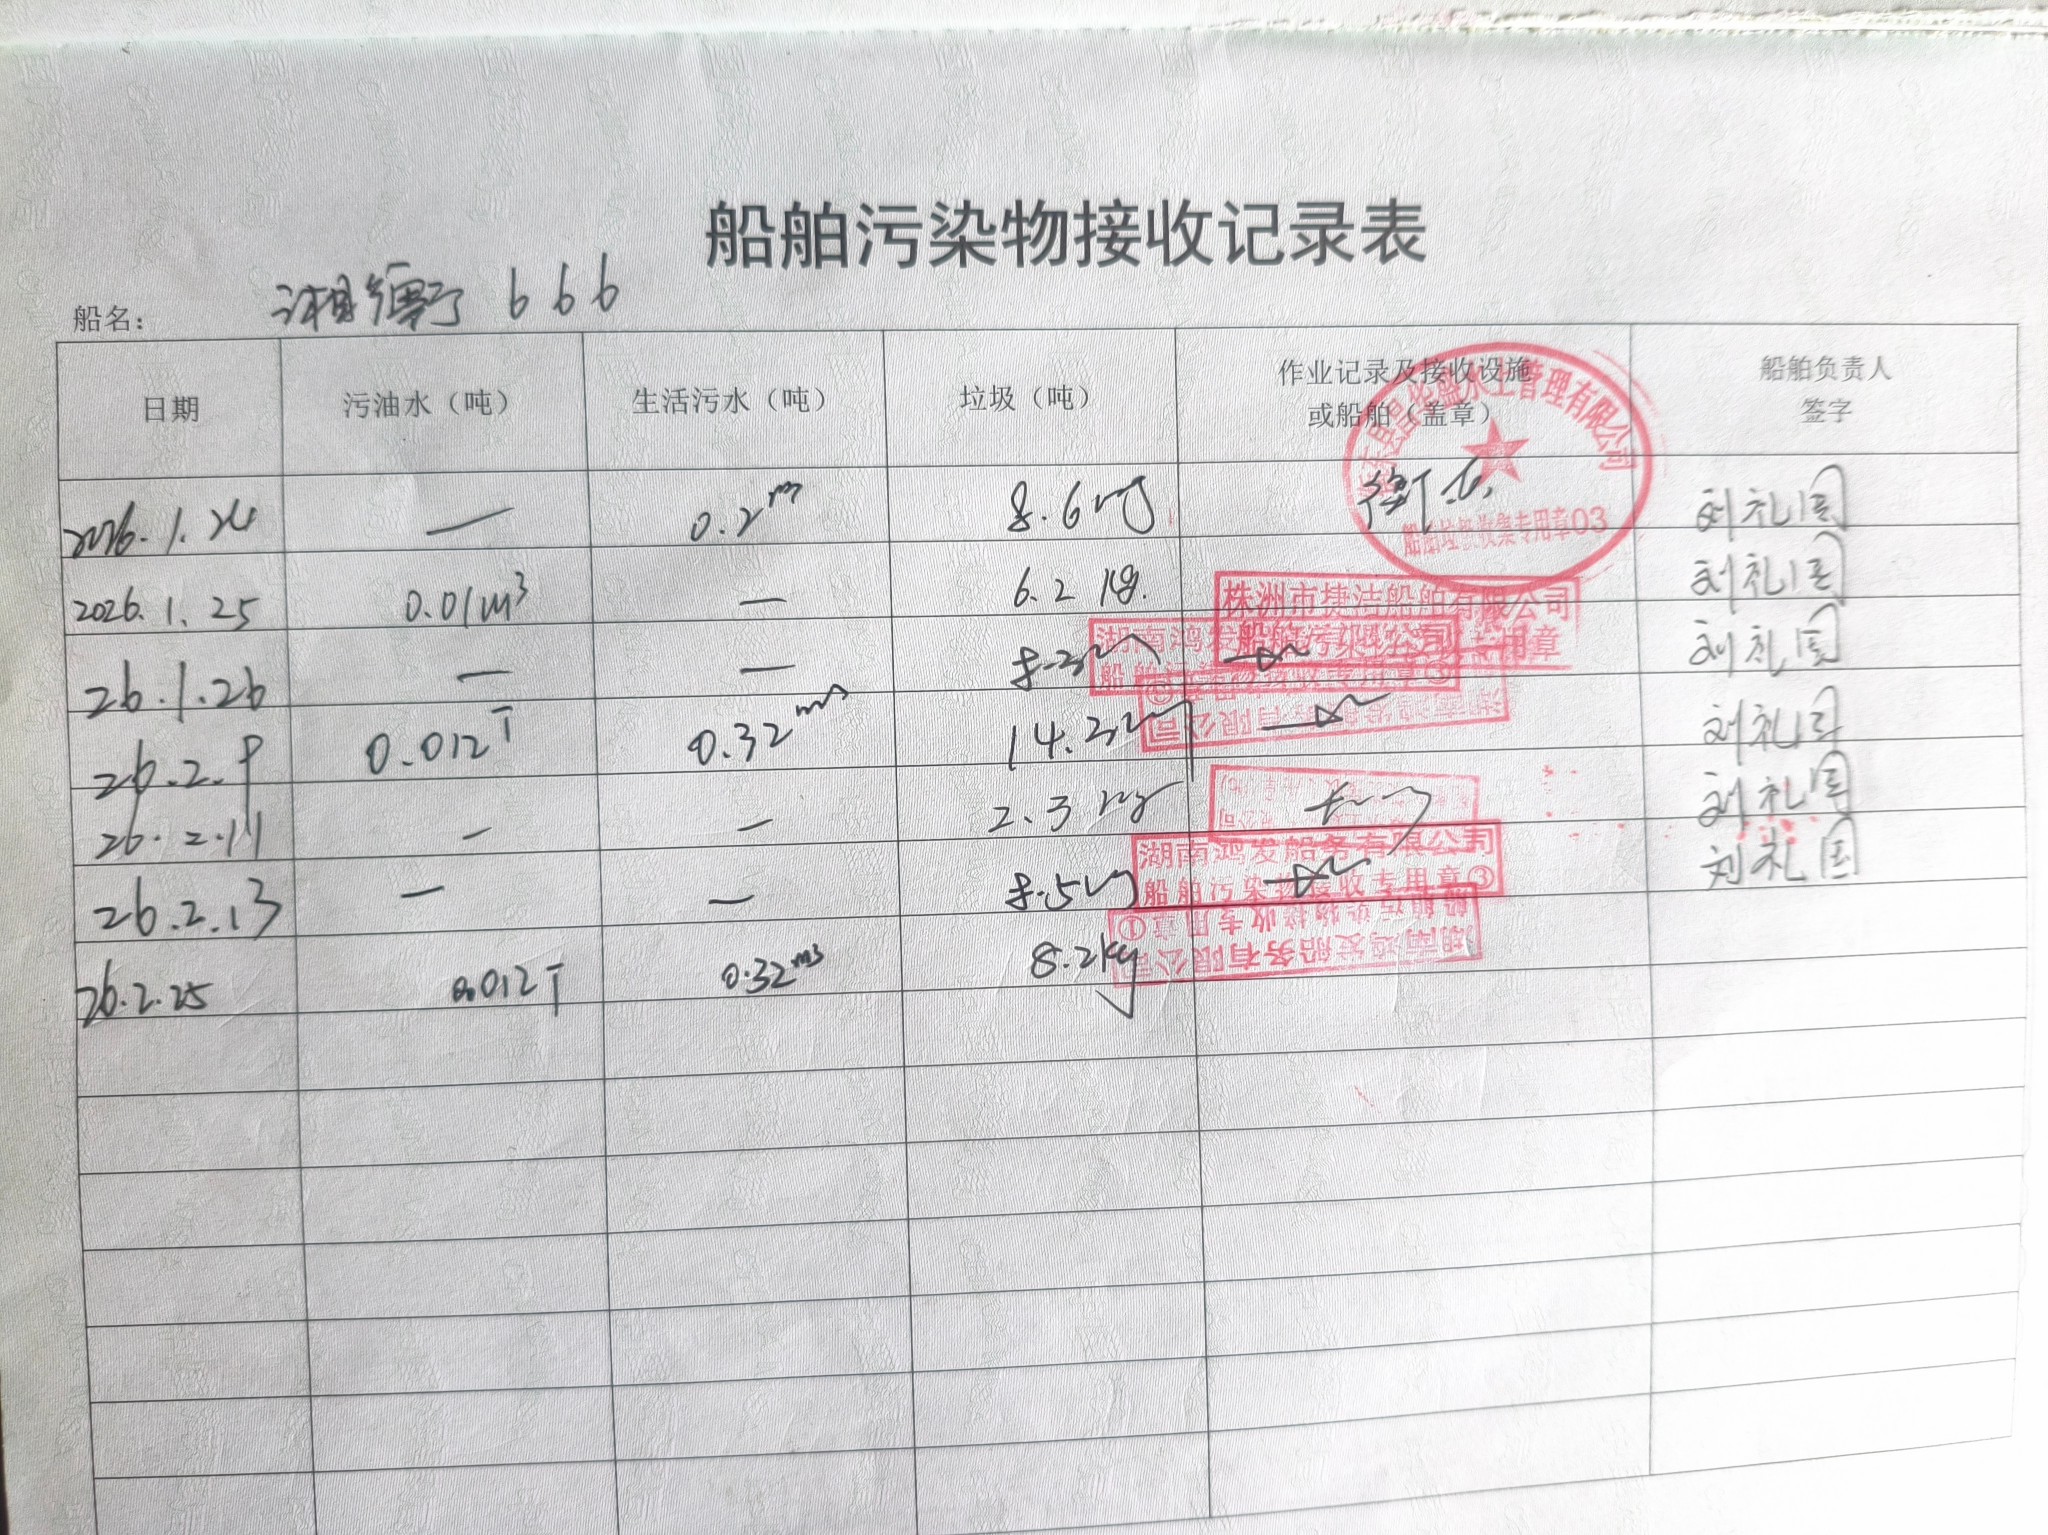 船舶污染物接收记录表
船名： 湘 666
日期 污油水（吨） 生活污水（吨） 垃圾（吨） 作业记录及接收设施或船舶（盖章） 船舶负责人签字
2026.1.24 — 0.2m 8.6kg 刘礼国
2026.1.25 0.01m³ — 6.2 kg. 刘礼国
26.1.26 — — 8.3kg 刘礼国
26.2.9 0.012T 0.32m³ 14.3kg 刘礼国
26.2.11 — — 2.3kg 刘礼国
26.2.13 — — 8.5kg 刘礼国
26.2.25 0.012T 0.32m³ 8.2kg
水上管理有限公司
船舶垃圾收集专用章03
株洲市捷洁船舶有限公司
专用章
湖南鸿发船务有限公司
船舶污染物接收专用章③
湖南鸿发船务有限公司
船舶污染物接收专用章①